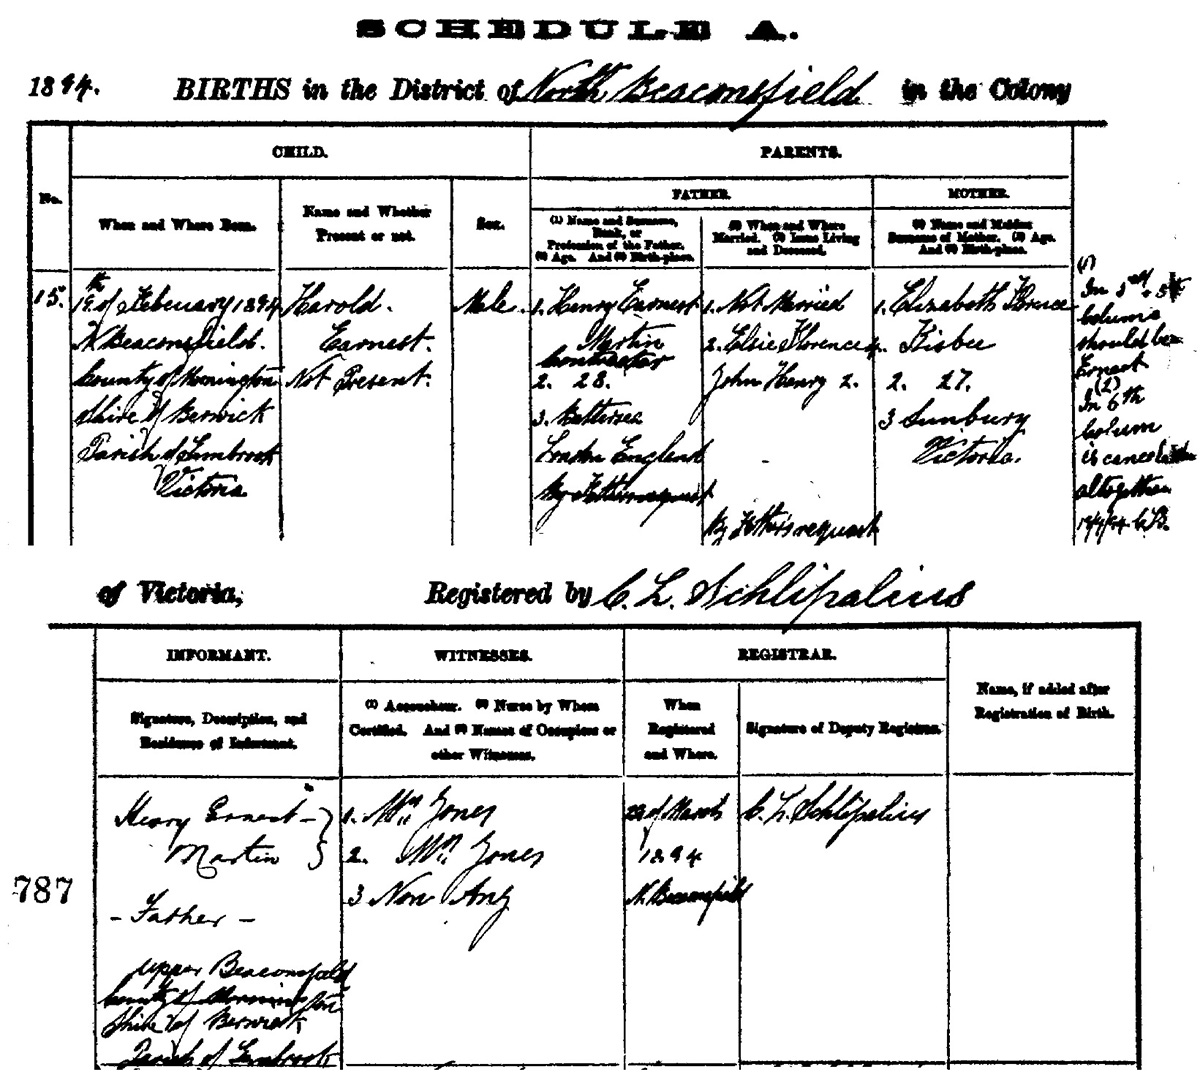 SCHEDULE A.
1894. BIRTHS in the District of North Beaconsfield in the Colony
CHILD.
PARENTS.
No.
When and Where Born.
Name and Whether
Present or not.
Sex.
FATHER.
(1) Name and Surname,
Rank, or
Profession of the Father.
(2) Age. And (3) Birth-place.
(1) When and Where
Married. (2) Issue Living
and Deceased.
MOTHER.
(1) Name and Maiden
Surname of Mother. (2) Age.
And (3) Birth-place.
15.
19th of Febeuary 1894
N. Beaconsfield.
County of Mornington
Shire of Berwick
Parish of Gembrook
Victoria
Harold.
Earnest.
Not Present.
Male.
1. Henry Earnest
Martin
Contractor
2. 28.
3. Battersea
London England
By Father's request
1. Not Married
2. Elsie Florence 4.
John Henry 2.
By Father's request
1. Elizabeth Florence
Kisbee
2. 27.
3 Sunbury
Victoria.
(1)
In 3rd & 5th
Column
should be
Ernest
(2)
In 6th
Column
is canceled
altogether
of Victoria,
Registered by C. L. Schlipalius
INFORMANT.
Signature, Description, and
Residence of Informant.
WITNESSES.
(1) Accoucheur. (2) Nurse by Whom
Certified. And (3) Names of Occupiers or
other Witnesses.
REGISTRAR.
When
Registered
and Where.
Signature of Deputy Registrar.
Name, if added after
Registration of Birth.
787
Henry Ernest
Martin
- Father -
Upper Beaconsfield
County of Mornington
Shire of Berwick
Parish of Gembrook
1. Mrs Jones
2. Mrs Jones
3 Non Any
of March
1894
N. Beaconsfield
C. L. Schlipalius